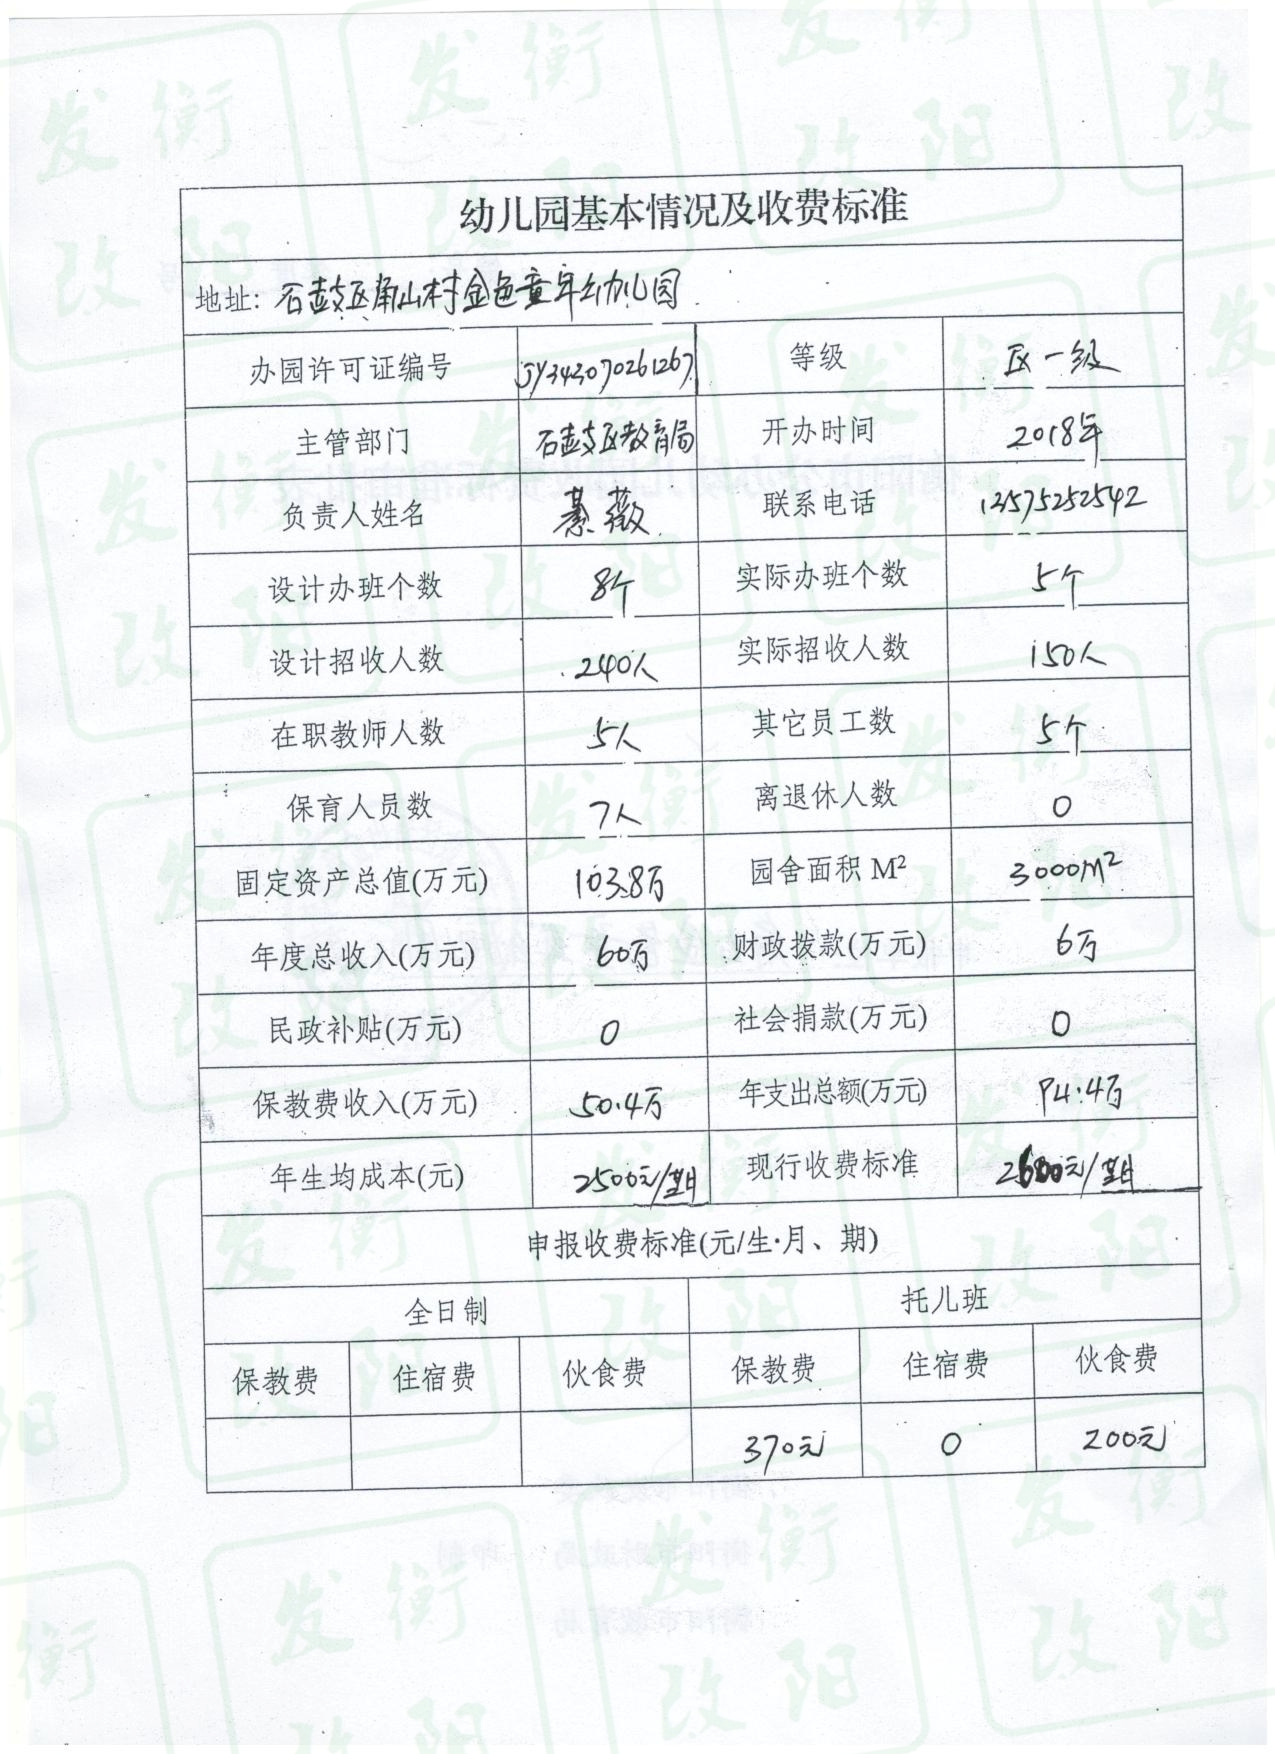 幼儿园基本情况及收费标准
地址: 石鼓区角山村金色童年幼儿园
办园许可证编号 JY343070261267 等级 区一级
主管部门 石鼓区教育局 开办时间 2018年
负责人姓名 綦薇 联系电话 13575252542
设计办班个数 8个 实际办班个数 5个
设计招收人数 240人 实际招收人数 150人
在职教师人数 5人 其它员工数 5个
保育人员数 7人 离退休人数 0
固定资产总值(万元) 103.8万 园舍面积 M² 3000m²
年度总收入(万元) 60万 财政拨款(万元) 6万
民政补贴(万元) 0 社会捐款(万元) 0
保教费收入(万元) 50.4万 年支出总额(万元) 94.4万
年生均成本(元) 2500元/期 现行收费标准 元/期
申报收费标准(元/生·月、期)
全日制 托儿班
保教费 住宿费 伙食费 保教费 住宿费 伙食费
370元 0 200元
衡阳发改